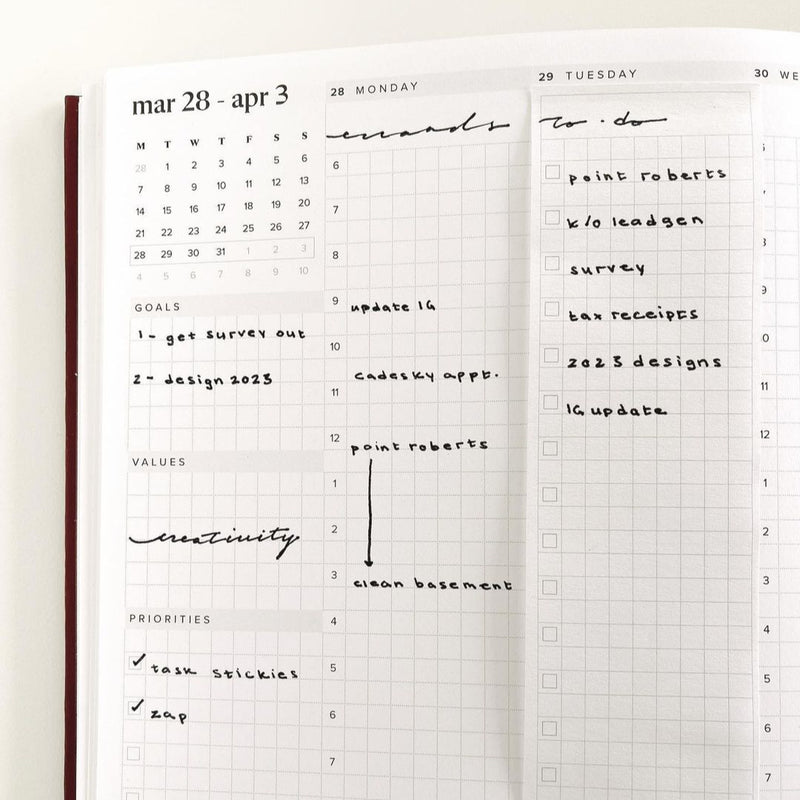 mar 28 - apr 3
M T W T F S S
28 1 2 3 4 5 6
7 8 9 10 11 12 13
14 15 16 17 18 19 20
21 22 23 24 25 26 27
28 29 30 31 1 2 3
4 5 6 7 8 9 10
GOALS
1- get survey out
2- design 2023
VALUES
creativity
PRIORITIES
✓ task stickies
✓ zap
28 MONDAY
errands
6
7
8
9 update IG
10
cadesky appt.
11
12 point roberts
1
2
3 clean basement
4
5
6
7
29 TUESDAY
to·do
point roberts
k/o leadgen
survey
tax receipts
2023 designs
IG update
30 WE
11
12
1
2
3
4
5
6
7